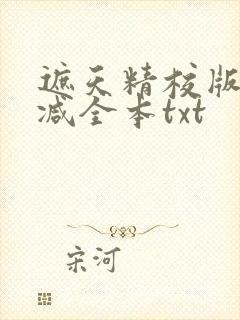 遮天精校版
减全本txt
宋河